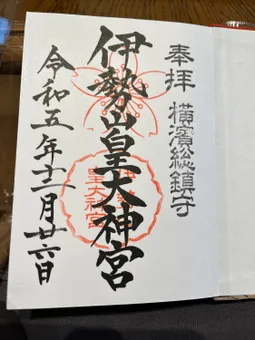 奉拝 横濱総鎮守
伊勢山皇大神宮
令和五年十一月廿六日
皇大神宮